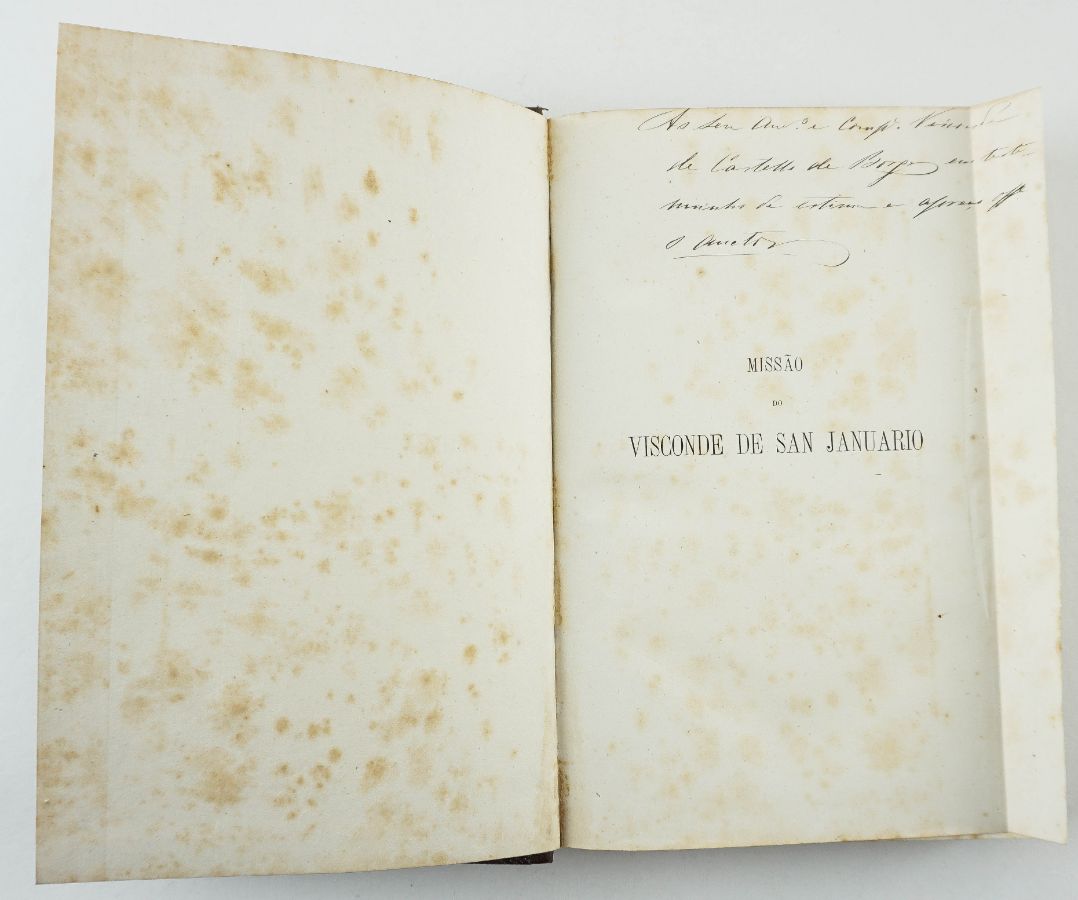 Ao seu Am.º e Comp.º Visconde
de Castello de Borges em teste-
munho de estima e apreço off.
o auctor
MISSÃO
DO
VISCONDE DE SAN JANUARIO